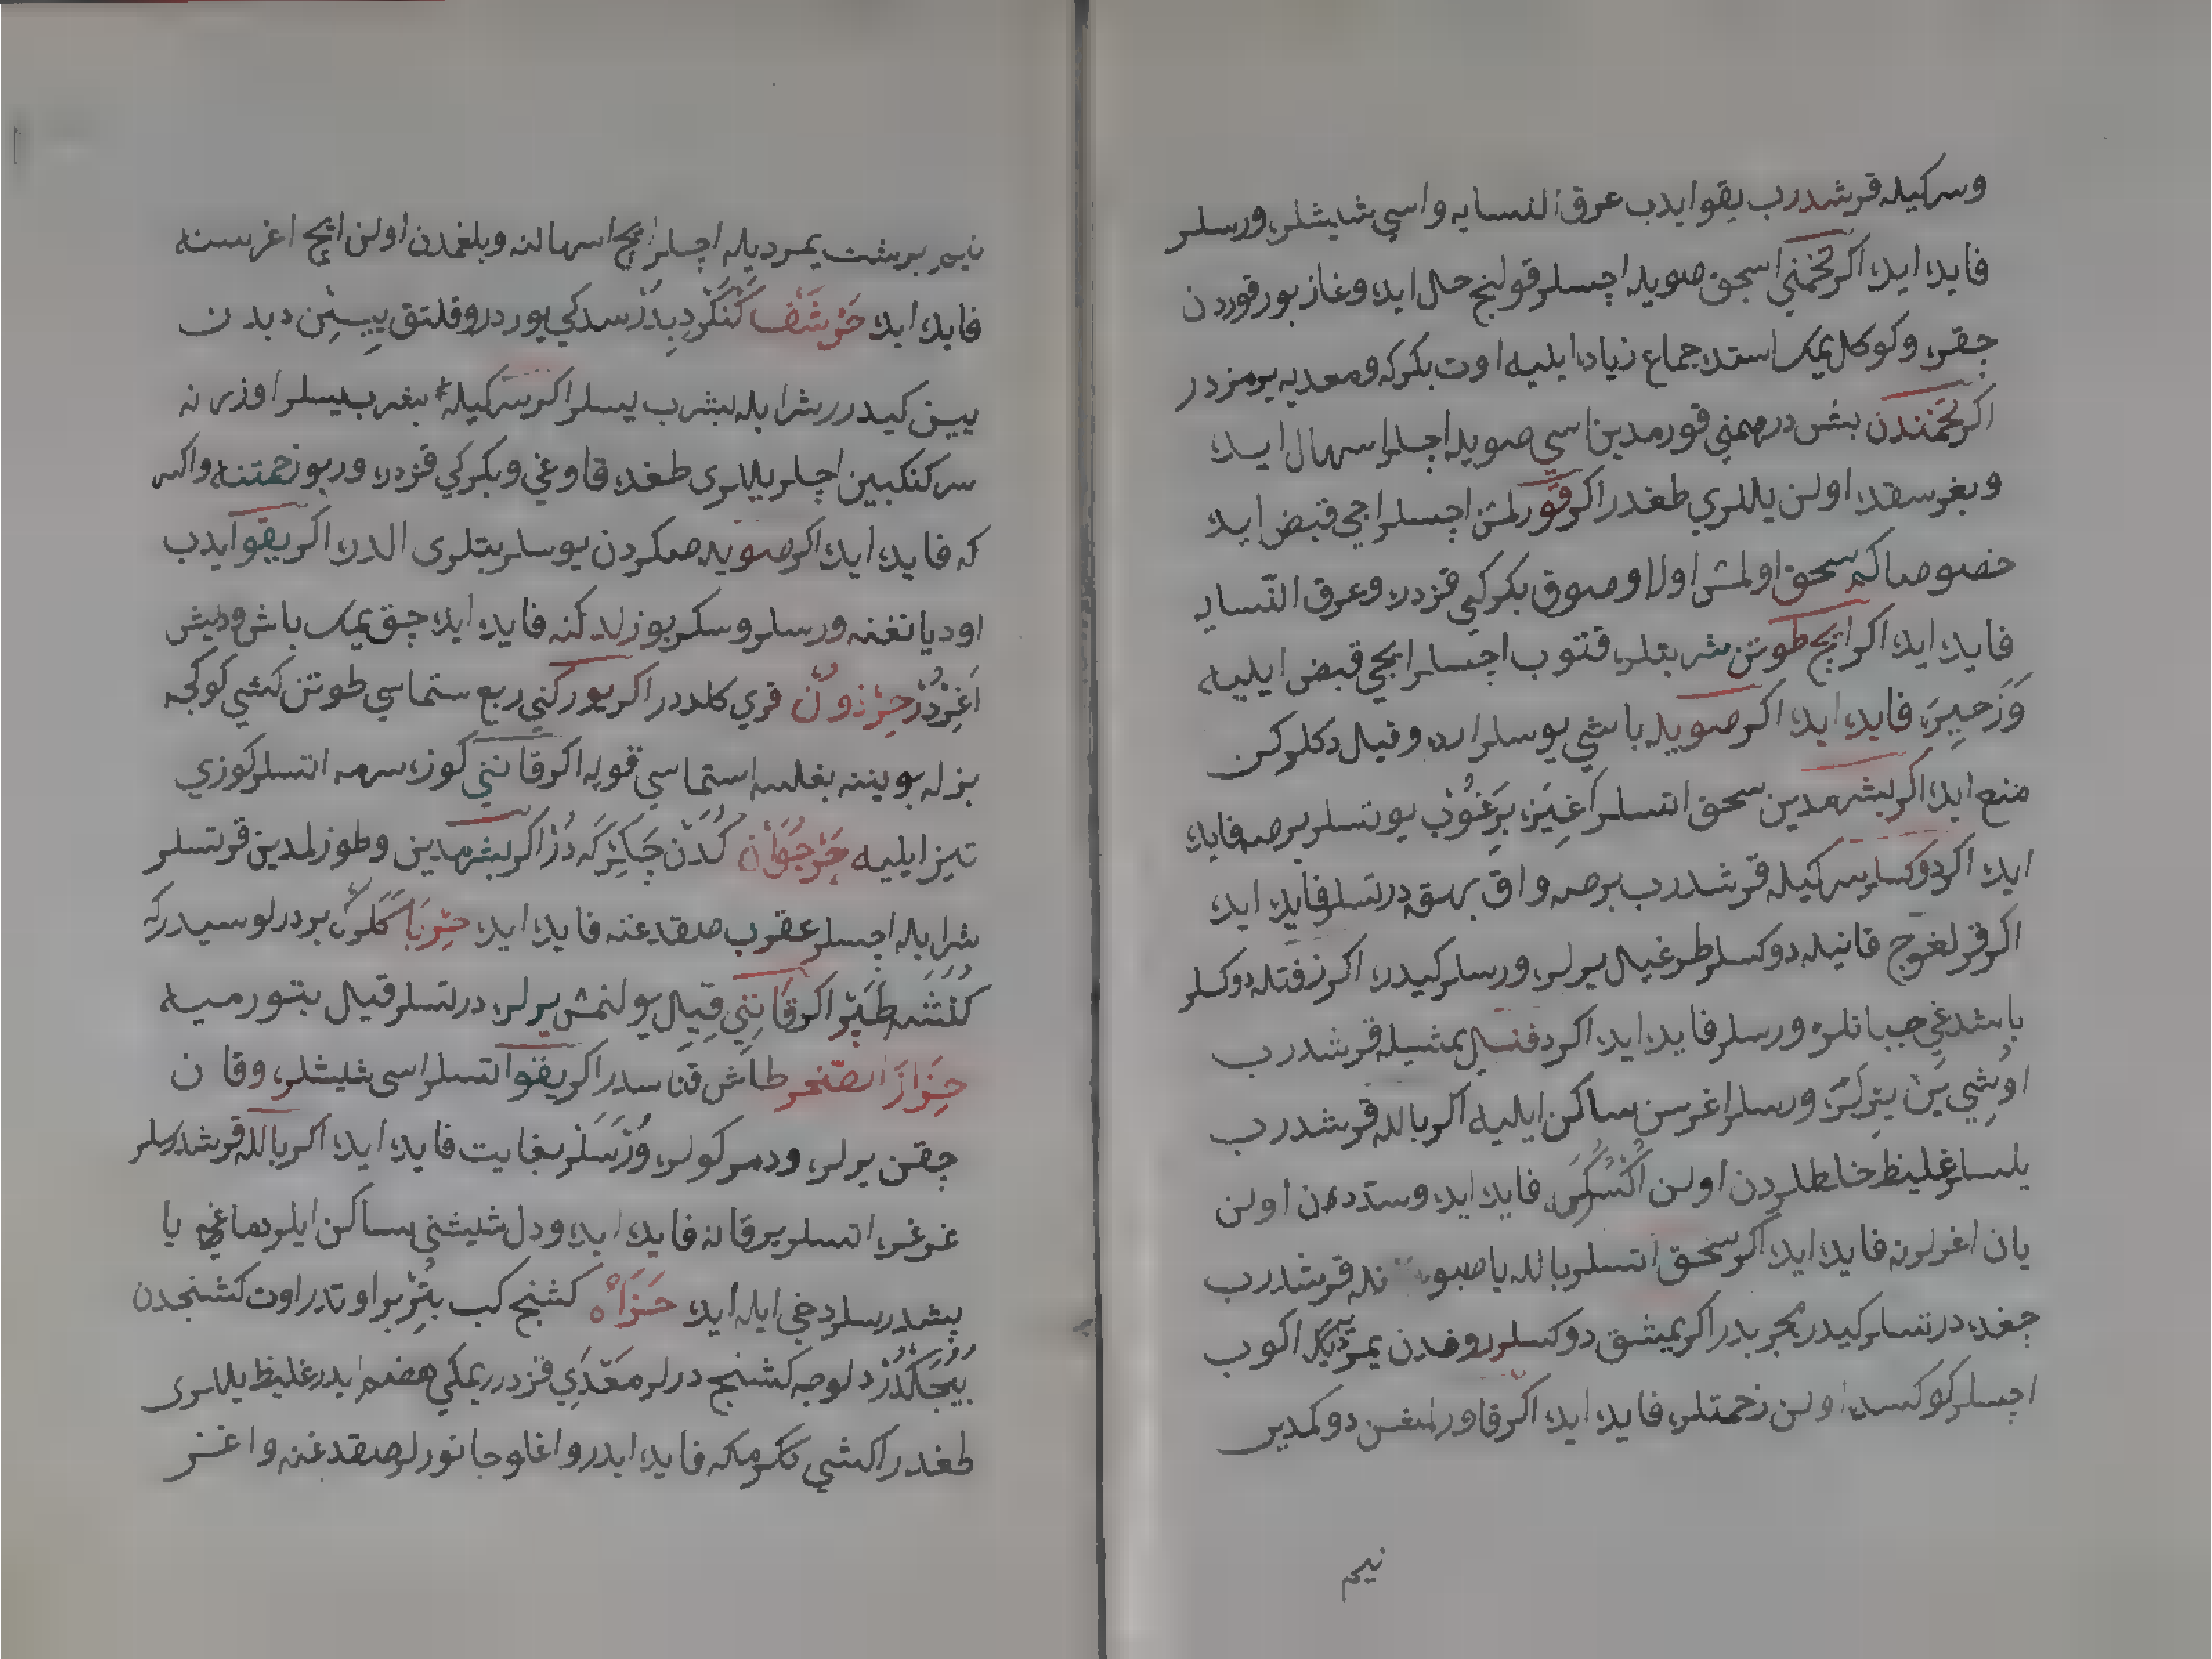 وسركيله قرشدرب يقو ايدب عرق النسايه واسي شيشلره ورسلر
فايده ايده اكر تخمني اسجق صويله اچسلر قولنج حل ايده وغاز بورقوردن
جقره وكوكل يمك استده جماع زياده ايليه اوت بكركه ومعديه يرمزدر
اكر تخمندن بش درهمني قورمدين اسي صويله اچلر اسهال ايده
وبغرسقده اولن يللري طغدر اكر قورلمش اچسلر اچي قبض ايده
خصوصا كه سحق اولمش اولا وصوق بكركي قزدره وعرق النسايه
فايده ايده اكر ايچ طوتن شربتلره قتوب اچسلر ايچي قبض ايليه
وزحيره فايده ايده اكر صويله باشي يوسلر ارده وقيل دكلركن
منع ايده اكر بشرمدين سحق اتسلر اغيزه برغوب يوتسلر برصه فايده
ايده اكر دوكسلر سركيله قرشدرب برصه واق بهقه درتسلر فايده ايده
اكر قرلغوج قانيله دوكسلر طرغيل يرلره ورسلر كيدره اكر زفتله دوكسلر
باشدغي چبانلره ورسلر فايده ايده اكر دفنه يمشيله قرشدرب
اوشي ين يرلره ورسلر اغرسن ساكن ايليه اكر باله قرشدرب
يلسلر غليظ خلطلردن اولن اكسركه فايده ايده وسددهدن اولن
يان اغرلرنه فايده ايده اكر سحق اتسلر باله يا صبو ندله قرشدرب
چغده درتسلر كيدر مجربدر اكر يمشق دوكسلر روفدن يمرديله اكوب
اچسلر كوكسده اولن زحمتلره فايده ايده اكر قاورلمغن دوكمدين
نيم
نيم برشت يمرديله اچلر ايچ اسهالنه وبلغمدن اولن ايچ اغرسنه
فايده ايده حرشف كنكر ديدرسدكي يوردر وقلتق ييسين دبدن
يين كيدرر شرابله بشرب يسلر اكر سركيله بشرب يسلر اوزرنه
سركنكبين اچلر يللري طغده قاوغي وبكركي قزدره وربو زحمتنه واكسر
كه فايده ايده اكر صويله صمكردن يوسلر بتلري الدره اكر يقو ايدب
اوديانغنه ورسلر وسكر بوزلدكنه فايده ايده چق يمك باش وديش
اغردر حرذون قري كلدر اكر يوركني ربع ستماسي طوتن كشي كوكجه
بزله بويننه بغلسه استماسي قويه اكر قانني كوزه سرمه اتسلر كوزي
تيز ايليه حرجوان كدن چكركه در اكر بشرمدين وطوزلمدين قرتسلر
شرابله اچسلر عقرب صقدغنه فايده ايده حربا كلر بر درلو سيدركه
كلنشه طپر اكر قانني قيل يولنمش يرلره درتسلر قيل بتورميه
حزاز الصخر طاش قناسدر اكر يقو اتسلر اسي شيشلره وقان
چقن يرلره ودمركولره ورسلر بغايت فايده ايده اكر باله قرشدرسلر
غرغره اتسلر يرقانه فايده ايده ودل شيشني ساكن ايلر دماغي يا
پشدرسلر دخي ايله ايده حزاه كشنج كب بتر بر اوتدر اوت كشنجدن
بيجكدر دلوجه كشنج درلر معدي قزدرر يمكي هضم ايدر غليظ يللري
طغدر اكشي ككرمكه فايده ايدر واغلو جانورلر صقدغنه واغز